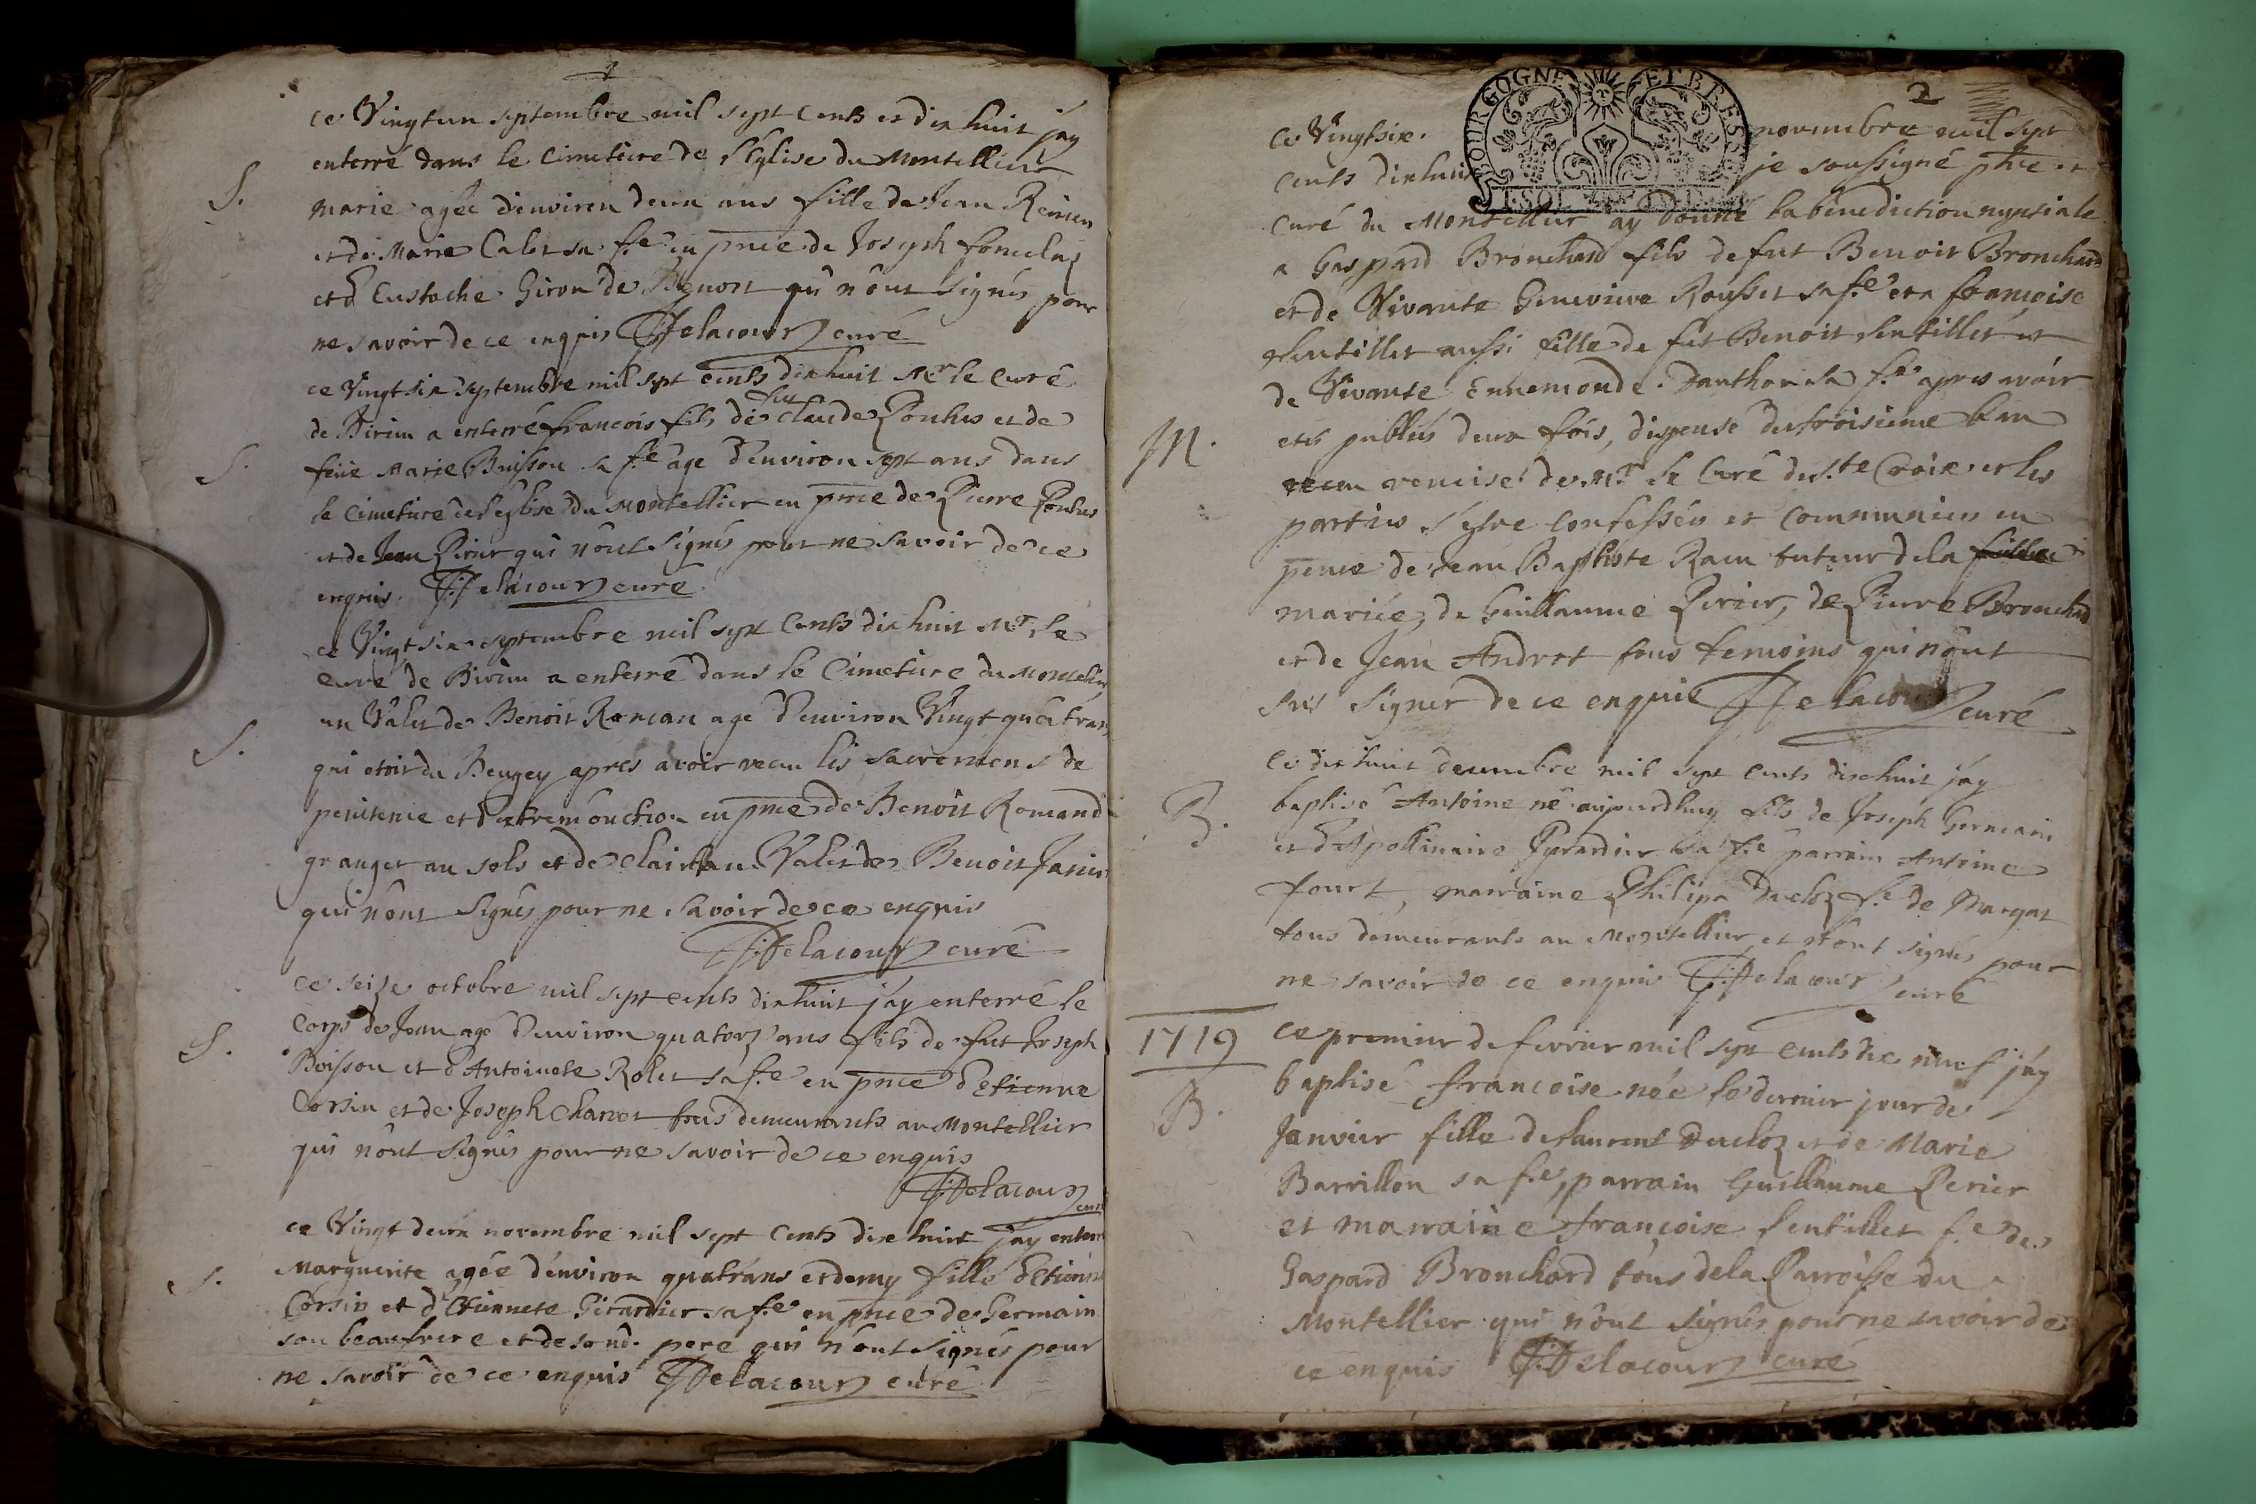 1
ce Vingtun septembre mil sept cents et dixhuit jay
enterré dans le cimetiere de l'Eglise du Montellier
S.
marie agée d'environ deux ans fille de Jean
et de Marie Calet sa f.e en pnce de Joseph
et d Eustache Giron de qui n'ont signés pour
ne savoir de ce enquis Delacour curé
ce Vingt six septembre mil sept cents dixhuit Mr le curé
de Birieu a enterré francois fils de feu claude Ponhus et de
S.
feüe Marie Buisson sa f.e age d'environ sept ans dans
le cimetiere de l'eglise du Montellier en pnce de Pierre Ponhus
et de Jean Perier qui n'ont signés pour ne savoir de ce
enquis. Delacour curé
ce Vingt six septembre mil sept cents dix huit Mr le
curé de Birieu a enterré dans le Cimetiere du Montellier
un Valet de Benoit Roman agé d'environ Vingt quatrans
S.
qui etoit du Beugey apres avoir receu les sacremens de
penitence et d'extremonction en pnce de Benoit Romand
granger au sols et de Valet de Benoit Janin
qui n'ont signés pour ne savoir de ce enquis
Delacour curé
ce seize octobre mil sept cents dixhuit j'ay enterré le
corps de Jean agé d'environ quatorz'ans fils de fut Joseph
S.
Boisson et d'Antoinete Rolet sa f.e en pnce d'Etienne
Corsin et de Joseph Charvet tous demeurants au Montellier
qui n'ont signés pour ne savoir de ce enquis
Delacour
curé
ce Vingt deux novembre mil sept cents dix huit j'ay enterré
S.
Marguerite agée d'environ quatrans et demy fille d'Etienne
Corsin et d'Etiennete Girardier sa f.e en pnce de Germain
son beaufrere et de sond. pere qui n'ont signés pour
ne savoir de ce enquis Delacour curé
2
BOURGOGNE ET BRESSE
ce Vingtsix novembre mil sept
cents dixhuit je soussigné ptre et
curé du Montellier ay donné la benediction nuptiale
a Gaspard Bronchard fils de fut Benoit Bronchard
et de Vivante Genevieve Rousset sa f.e et a francoise
Lentillet aussi fille de fut Benoit Lentillet et
de Vivante Ennemonde Danthon sa f.e apres avoir
M.
etés publiés deux fois, dispense du troisieme ban
receu remise de Mr le Curé de s.te Croix et les
parties s'estre confessées et communiées en
pence de Jean Baptiste Ram tuteur de la fille
mariée, de Guillaume Perier, de Pierre Bronchard
et de Jean Andret tous temoins qui n'ont
sus signer de ce enquis Delacour curé
ce dixhuit decembre mil sept cents dixhuit j'ay
baptisé Antoine né aujourdhuy fils de Joseph Germain
B.
et d'Apollinaire Gerardier sa f.e parrain Antoine
fourt, marraine Philipa Ducloz f.e de Margat
tous demeurants au Montellier et n'ont signés pour
ne savoir de ce enquis Delacour curé
1719
ce premier de fevrier mil sept cents dix neuf j'ay
baptisé francoise née le dernier jour de
B.
Janvier fille de laurent Ducloz et de Marie
Barrillon sa f.e, parrain Guillaume Perier
et marraine françoise Lentillet f.e de
Gaspard Bronchard tous de la Parroisse du
Montellier qui n'ont signés pour ne savoir de
ce enquis Delacour curé